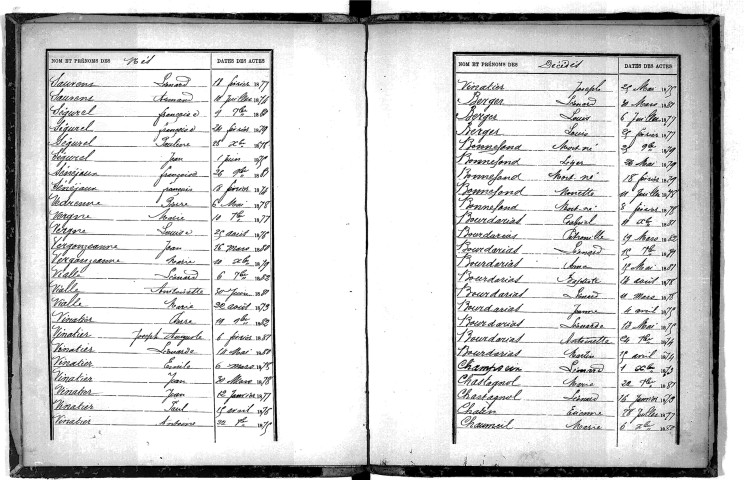 NOM ET PRÉNOMS DES Nés DATES DES ACTES
Saurens Léonard 18 février 1877
Saurens Armand 11 Juillet 1874
Ségurel françoise 9 7bre
Ségurel françoise 20 février 1879
Ségurel Pauline 28 Xbre 1878
Ségurel Jean 1 Juin
Sénéjaux françoise 26 9bre
Sénéjaux françois 18 février 1874
Vedrenne Pierre 6 Mai 1878
Vergne Marie 10 7bre 1877
Vergne Louise 25 août 1876
Vergonjeanne Jean 16 mars 1880
Vergonjeanne Marie 11 Xbre 1879
Vialle Léonard 6 7bre 1882
Vialle Antoinette 30 Juin
Vialle Marie 22 août 1873
Vinatier Pierre 19 9bre 1882
Vinatier Joseph Auguste 6 février 1881
Vinatier Léonarde 18 Mai 1880
Vinatier 6 mars 1878
Vinatier Jean 30 Mars 1878
Vinatier Jean 12 Janvier 1877
Vinatier Paul 15 avril 1876
Vinatier Antoine 22 1875
NOM ET PRÉNOMS DES Décédés DATES DES ACTES
Vinatier Joseph 25 Mai 1875
Berger Léonard 30 Mars 1881
Berger Louis 6 Juillet 1877
Berger Louis 25 février 1877
Bonnefond Mort-né 25 9bre 1879
Bonnefond Léger 26 Mai 1879
Bonnefond Mort-né 18 février 1879
Bonnefond Noncette 11 Juillet 1878
Bonnefond Mort-né 8 février 1878
Bourdarias Gabriel 11 Xbre
Bourdarias Pétronille 19 Mars 1882
Bourdarias Léonard 7bre
Bourdarias Anna 15 Mai 1881
Bourdarias Baptiste 18 août 1878
Bourdarias Léonard 11 mars 1878
Bourdarias Jeanne 4 avril 1875
Bourdarias Léonarde 18 Mai 1875
Bourdarias Antoinette 24 7bre 1874
Bourdarias Martin 19 avril 1874
Champseix Léonard 1 Xbre 1873
Chastagnol Marie 20 7bre 1881
Chastagnol Léonard 16 Janvier
Chatin Etienne 28 Juillet 1877
Chaumeil Marie 6 Xbre